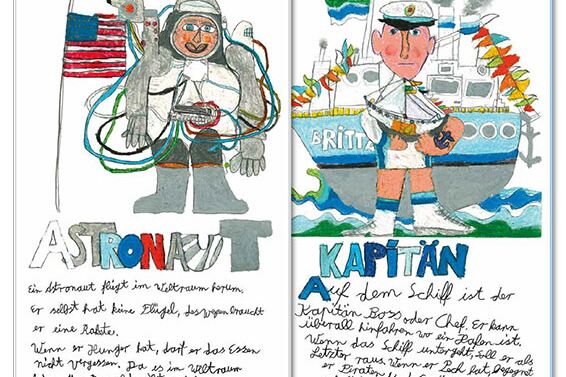 ASTRONAUT
Ein Astronaut fliegt im Weltraum herum.
Er selbst hat keine Flügel, deswegen braucht
er eine Rakete.
Wenn er Hunger hat, darf er das Essen
nicht vergessen. Da es im Weltraum
BRITTA
KAPITÄN
Auf dem Schiff ist der
Kapitän Boss oder Chef. Er kann
überall hinfahren wo ein Hafen ist.
Wenn das Schiff untergeht, soll er als
Letzter raus. Wenn er Pech hat, begegnet
er Piraten